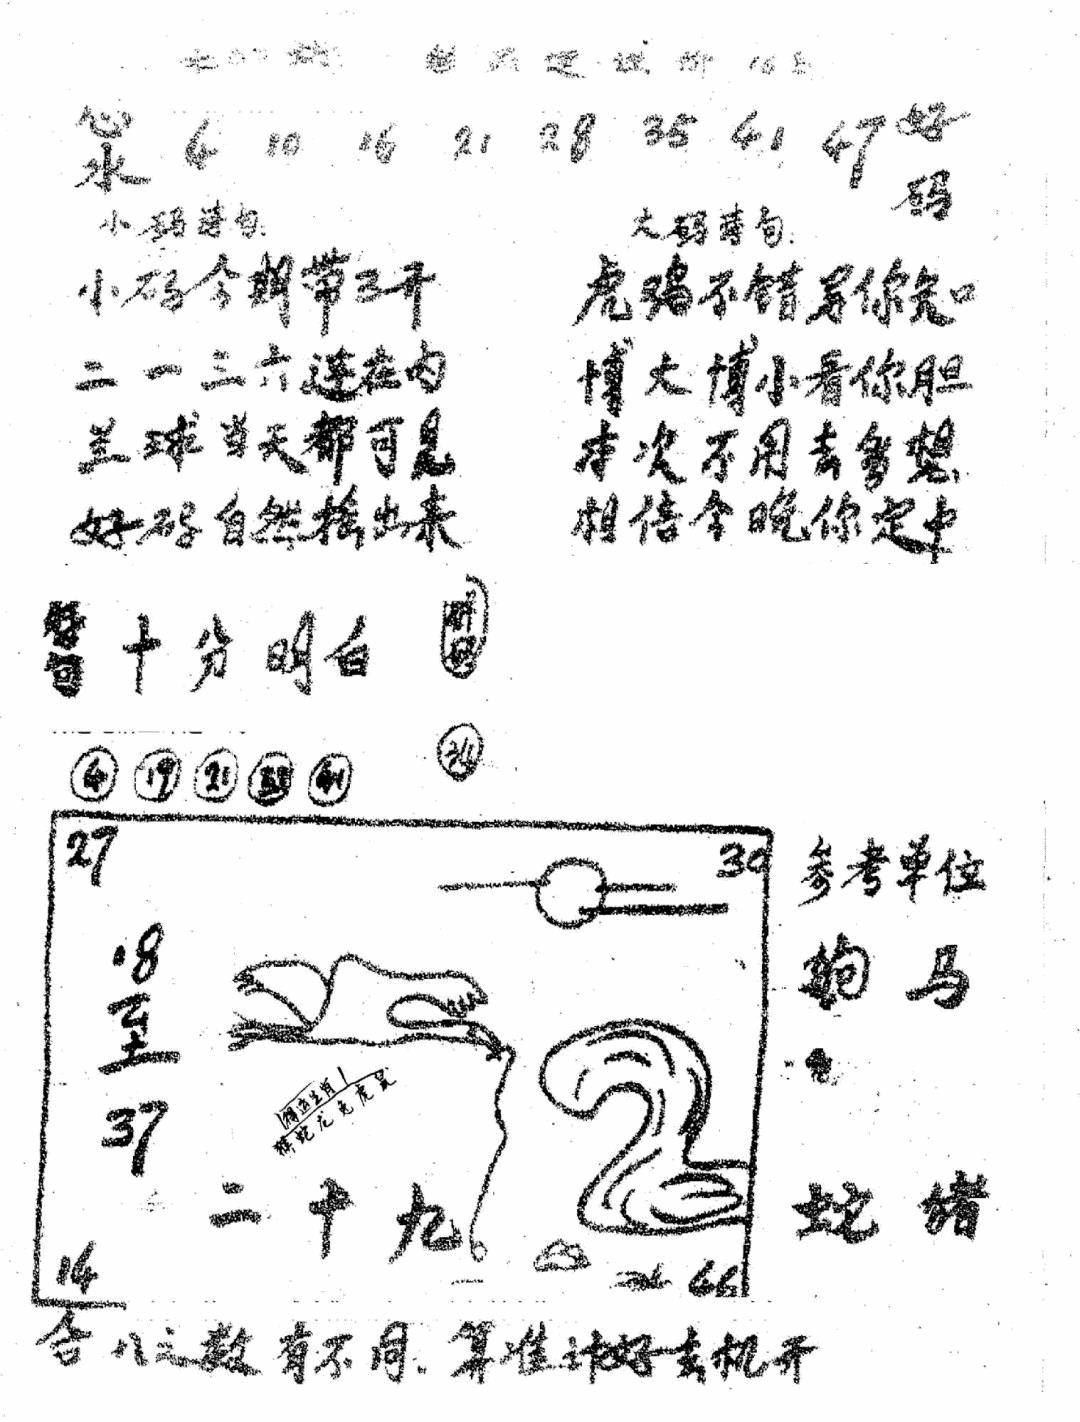 心水 4 10 16 21 28 35 41 47 好码
小码诗句
小码今期带3开
二一三六连在内
兰球当天都可见
好码自然拾出来
大码诗句
虎鸡不错另你知
博大博小看你胆
本次不用去多想
相信今晚你定中
十分明白
4 19 21 41
27 30
18至37
二十九
14 46
参考单位
狗 马
蛇 猪
合八之数有不同、算准计好去机开